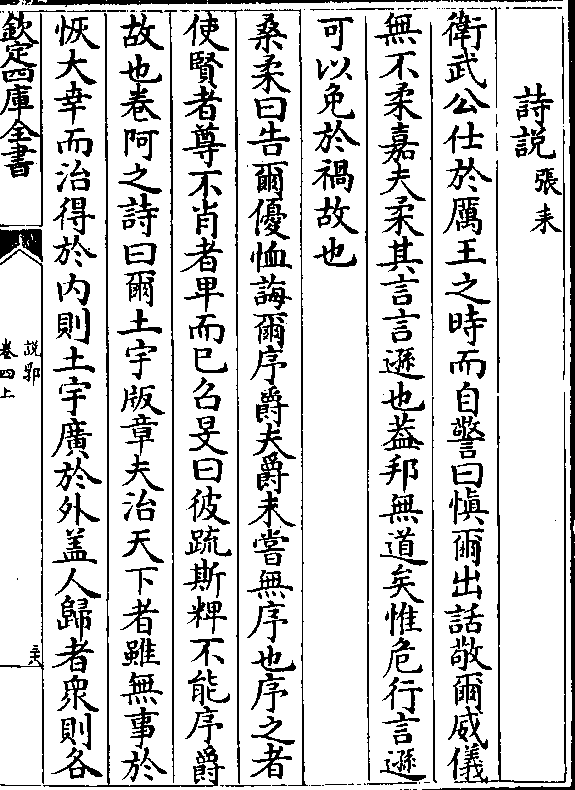 詩説 張耒
衛武公仕於厲王之時而自警曰慎爾出話敬爾威儀
無不柔嘉夫柔其言言遜也葢邦無道矣惟危行言遜
可以免於禍故也
桑柔曰告爾優恤誨爾序爵夫爵未嘗無序也序之者
使賢者尊不肖者卑而已召旻曰彼疏斯粺不能序爵
故也卷阿之詩曰爾土宇版章夫治天下者雖無事於
恢大幸而治得於内則土宇廣於外盖人歸者衆則各
欽定四庫全書
說郛
卷四上